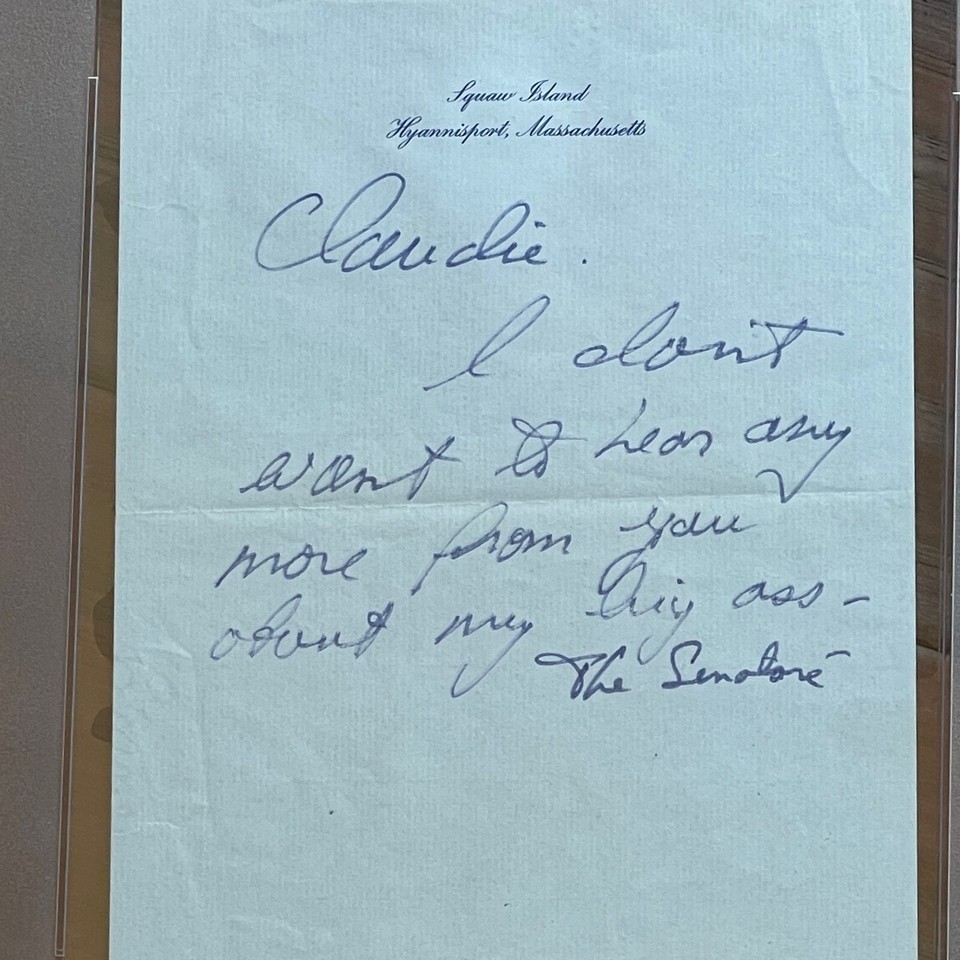 Squaw Island
Hyannisport, Massachusetts
Claudie.
I don't
want to hear any
more from you
about my big ass -
The Senatore